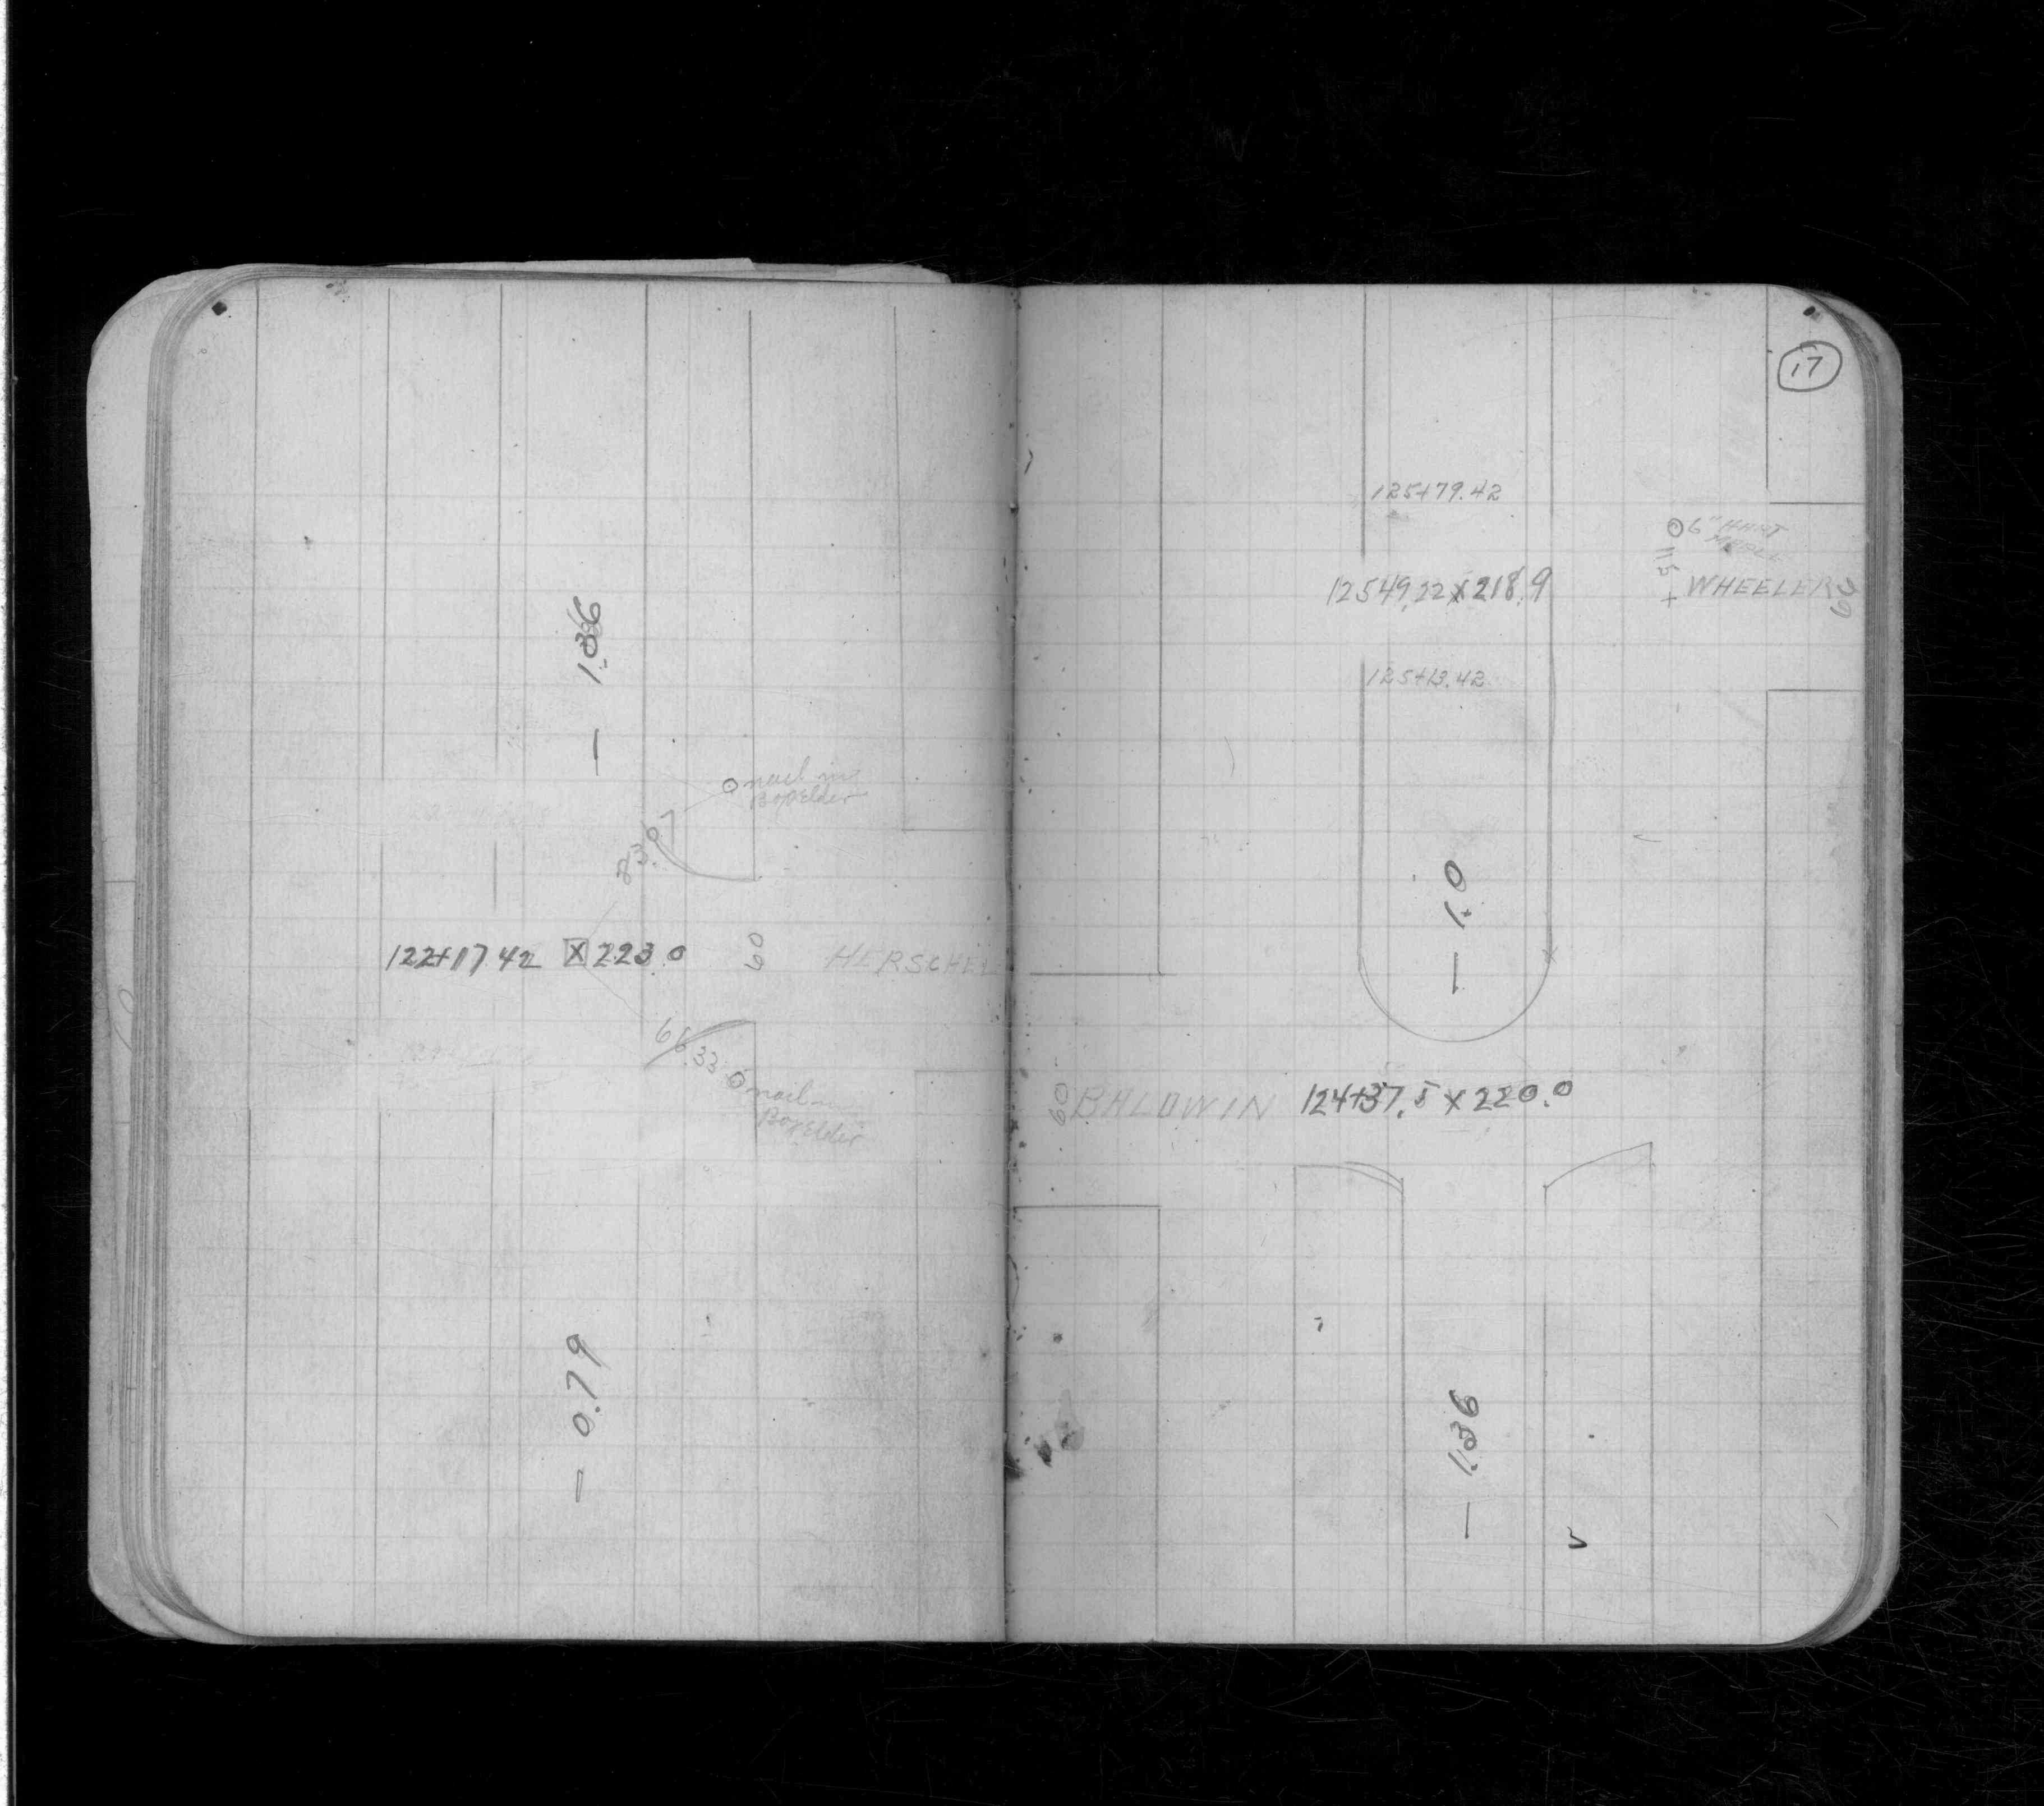 — 1.36
nail in
BoxElder
23.67
122+17.42 X 223.0
60
HERSCHEL
66.33
nail in
BoxElder
— 0.79
17
125+79.42
6" HART
MAPLE
11.5
12549.22 X 218.9
+ WHEELER
60
125+13.42
— 1.0
60
BALDWIN 124+37.5 X 220.0
— 1.36